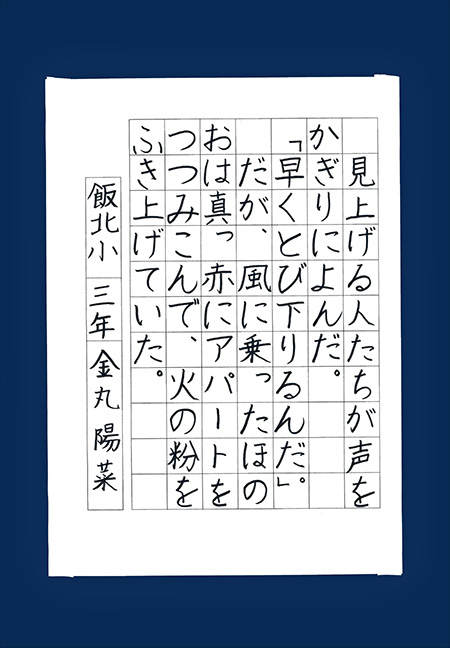 見上げる人たちが声を
かぎりによんだ。
「早くとび下りるんだ」。
だが、風に乗ったほの
おは真っ赤にアパートを
つつみこんで、火の粉を
ふき上げていた。
飯北小 三年 金丸陽菜